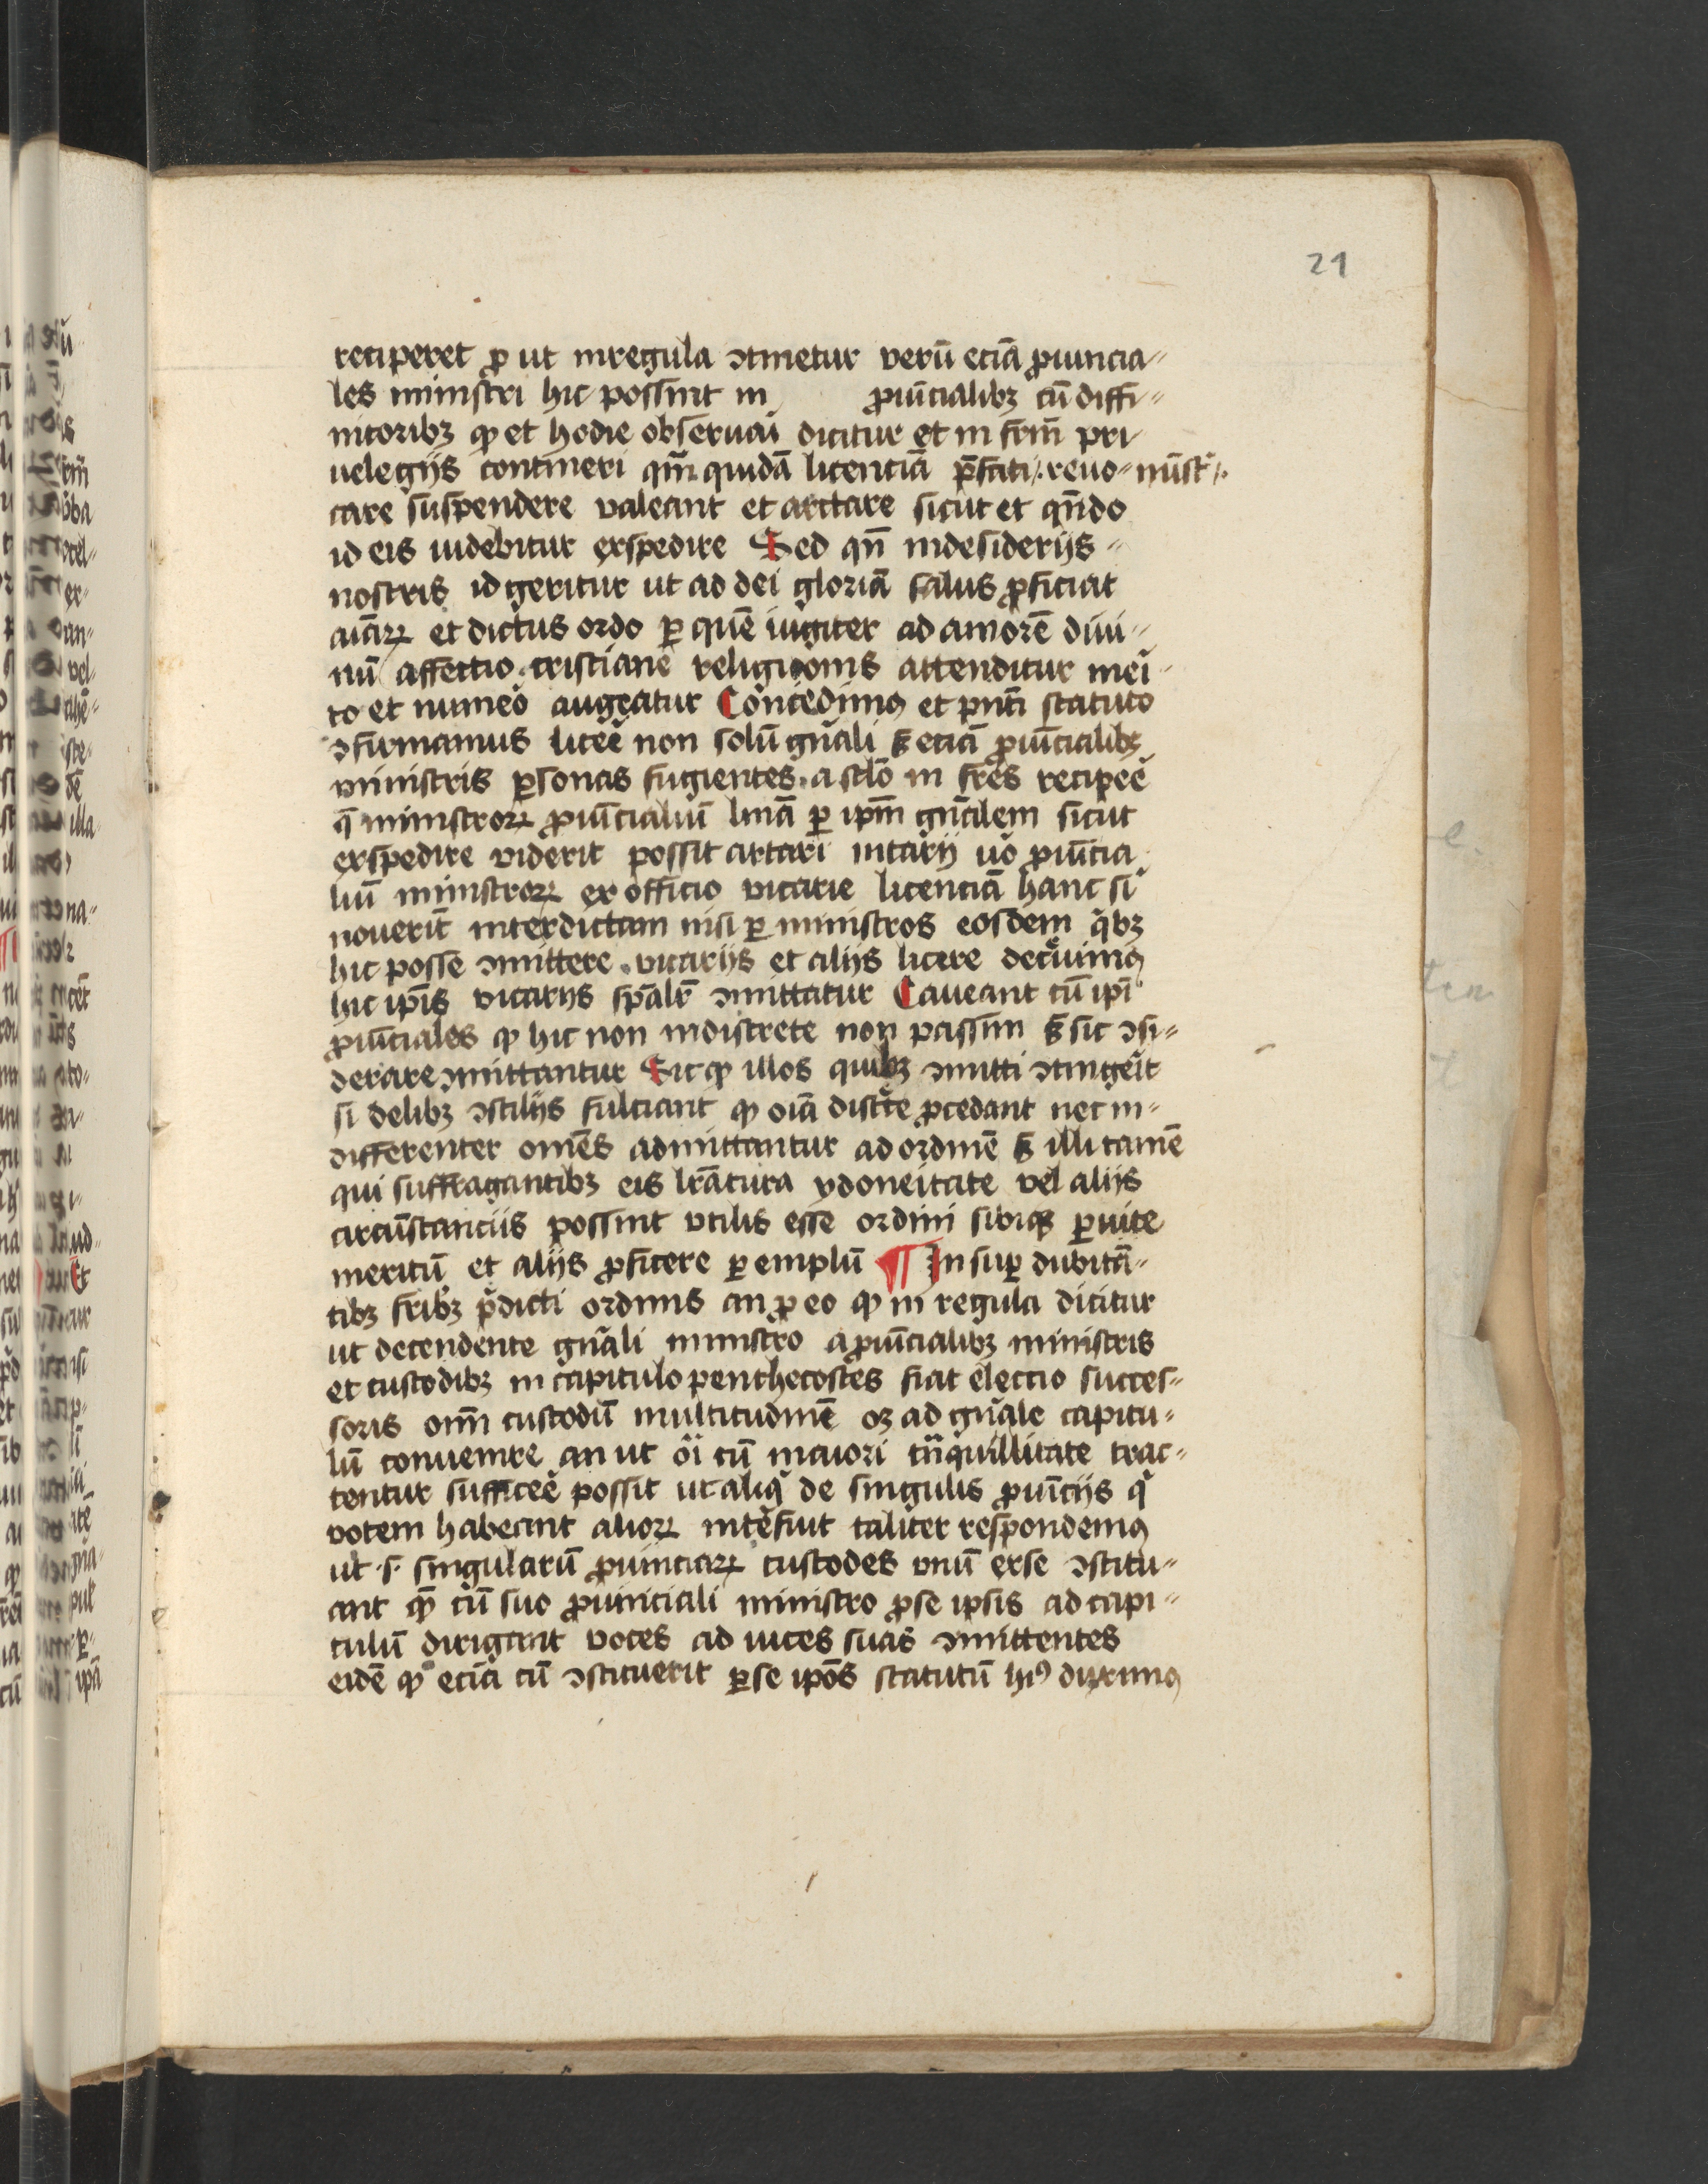 21
reciperet ꝓ ut inregula ↄtinetur verū eciā ꝓuincia⸗
les ministri hic possint in ꝓuīcialibꝫ cū diffi⸗
nitoribꝫ ꝙ et hodie obseruai dicitur et in frm̄ pri
uelegijs contineri qm̄ quidā licenciā p̄fati /. reuo⸗ mīstͥ /.
care suspendere valeant et arctare sicut et qn̄do
id eis uidebitur expedire Sed qn̄ indesiderijs⸗
nostris id geritur ut ad dei gloriā salus ꝓficiat
aīaꝝ et dictus ordo ꝑ quē iugiter ad amorē diui⸗
nū affectio cristiane religionis attenditur mei᷑
to et numeo᷑ augeatur Concedimꝰ et pn̄ti statuto
ↄfirmamus licee᷑ non solū gn̄ali ꝫ eciā ꝓuīcialibꝫ
ministris ꝑsonas fugientes a sclō in fr̄es recipee᷑
q̄ ministroꝝ ꝓuīcialiū lniā ꝑ ipm̄ gn̄alem sicut
expedire viderit possit artari uicarij uo᷑ ꝓuīcia
liū ministroꝝ ex officio vicarie licenciā hanc si᷑
nouerit̄ interdictam nisi ꝑ ministros eosdem qͥbꝫ
hic posse ↄmittere vicarijs et alijs licere decͥuimꝰ
hic ip̄is vicarijs spāli᷑ ↄmittatur Caueant cū ip̄i
ꝓuīciales ꝙ hic non indiscrete non passim ꝫ sic ↄsi⸗
derare ↄmittantur Sic ꝙ illos quibꝫ ↄmitti ↄtingei᷑t
si delibꝫ ↄsilijs fulciant ꝙ oīa discͤte ꝓcedant nec in⸗
differenter omēs admittantur ad ordinē ꝫ illi tamē
qui suffragantibꝫ eis lrātura ydoneitate vel alijs
circūstancijs possint vtilis esse ordini sibiqꝫ ꝑuite
meritū et alijs ꝓficere ꝑ emplū ¶ Insuꝑ dubitā⸗
tibꝫ fribꝫ p̄dicti ordinis an ꝓ eo ꝙ in regula dicitur
ut decendente gn̄ali ministro a ꝓuīcialibꝫ ministris
et custodibꝫ in capitulo penthecostes fiat electio succes⸗
soris om̄ custodū multitudinē oꝫ ad gn̄ale capitu⸗
lū conuenire an ut oī᷑ cū maiori tn̄quillitate trac⸗
tentur sufficee᷑ possit ut aliqͥ de singulis ꝓuīcijs qͥ
vocem habeant alioꝝ inte᷑sint taliter respondemꝰ
ut .s. singularū ꝓuinciaꝝ custodes vnū exse ↄstitu⸗
ant qē cū suo ꝓuinciali ministro ꝓse ipsis ad capi⸗
tulū dirigant voces ad uices suas ↄmittentes
eidē ꝙ eciā cū ↄstituerit ꝑse ipōs statutū hiꝰ duximꝰ